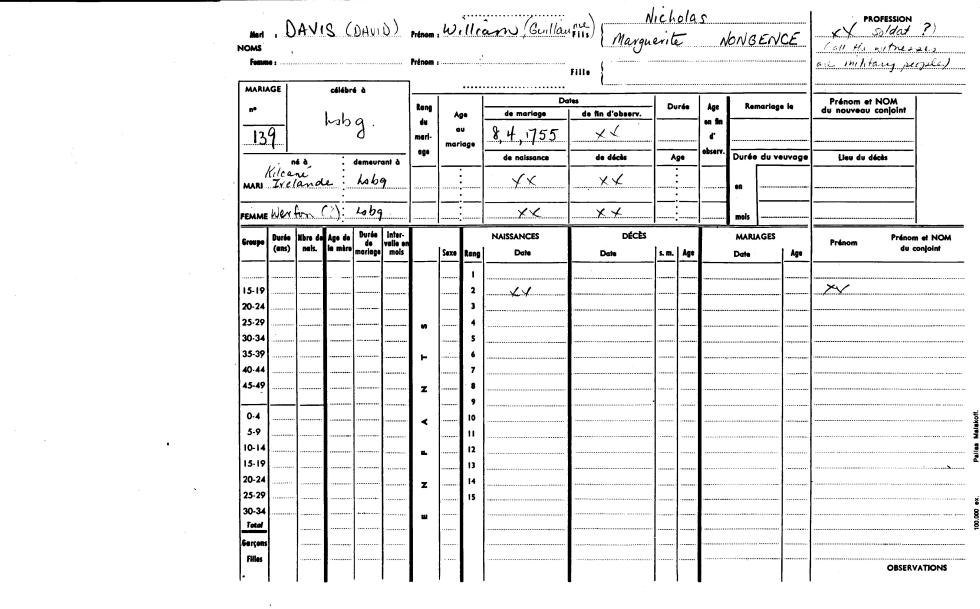 Mari : DAVIS (DAVID) Prénom : William (Guillaume) Fils { Nicholas
Marguerite NONGENCE
PROFESSION
XX soldat ?)
(all the witnesses
are military people)
NOMS
Femme : Prénom : Fille {
MARIAGE célébré à
n° 139 Lsbg.
Rang du mari- age
Age au mariage
Dates
de mariage de fin d'observ.
8,4,1755 XX
de naissance de décès
Durée
Age
Age en fin d' observ.
Remariage le
Durée du veuvage
en
mois
Prénom et NOM du nouveau conjoint
Lieu du décès
né à demeurant à
MARI Kilcani Irelande : Lsbg XX XX
FEMME Wexfon (?) : Lsbg XX XX
Groupe Durée (ans) Nbre de nais. Age de la mère Durée de mariage Inter- valle en mois Sexe Rang
NAISSANCES Date
DÉCÈS Date s. m. Age
MARIAGES Date Age
Prénom Prénom et NOM du conjoint
1
15-19 2 XX XX
20-24 3
25-29 4
30-34 5
35-39 6
40-44 7
45-49 8
9
0-4 10
5-9 11
10-14 12
15-19 13
20-24 14
25-29 15
30-34
Total
Garçons
Filles
ENFANTS
OBSERVATIONS
100,000 ex. Pallas Malakoff.